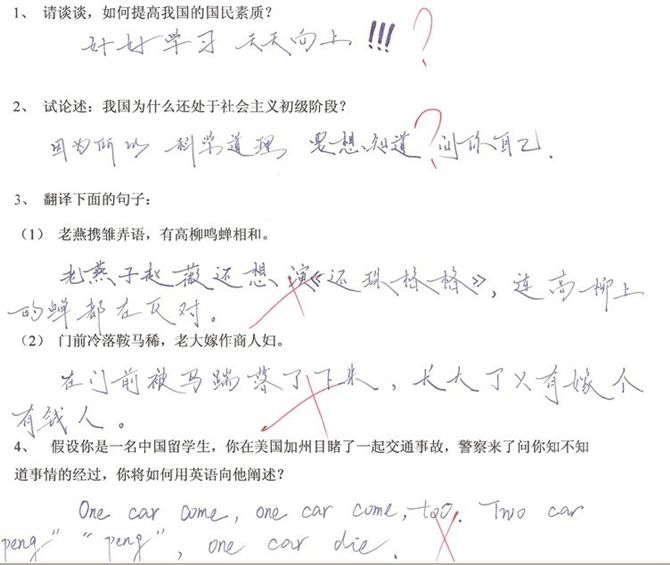 1、 请谈谈，如何提高我国的国民素质？
好好学习 天天向上 !!! ?
2、 试论述：我国为什么还处于社会主义初级阶段？
因为所以 科学道理 要想知道 问你自己. ?
3、 翻译下面的句子：
（1） 老燕携雏弄语，有高柳鸣蝉相和。
老燕子赵薇还想演《还珠格格》，连高柳上
的蝉都在反对。
（2） 门前冷落鞍马稀，老大嫁作商人妇。
在门前被马踹落了下来，长大了又有嫁个
有钱人。
4、 假设你是一名中国留学生，你在美国加州目睹了一起交通事故，警察来了问你知不知
道事情的经过，你将如何用英语向他阐述？
One car come, one car come, too. Two car
peng" "peng", one car die.